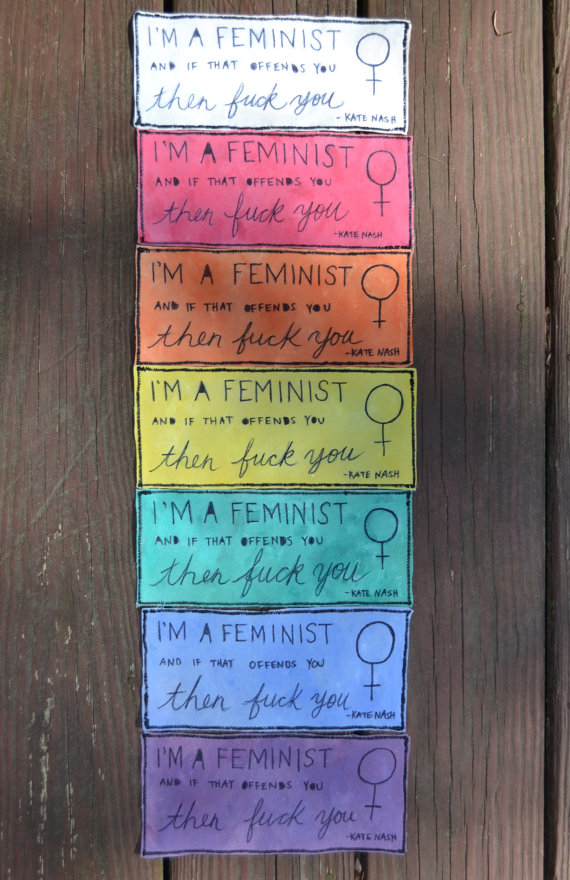 I'M A FEMINIST
AND IF THAT OFFENDS YOU
then fuck you
- KATE NASH
I'M A FEMINIST
AND IF THAT OFFENDS YOU
then fuck you
-KATE NASH
I'M A FEMINIST
AND IF THAT OFFENDS YOU
then fuck you
-KATE NASH
I'M A FEMINIST
AND IF THAT OFFENDS YOU
then fuck you
-KATE NASH
I'M A FEMINIST
AND IF THAT OFFENDS YOU
then fuck you
-KATE NASH
I'M A FEMINIST
AND IF THAT OFFENDS YOU
then fuck you
-KATE NASH
I'M A FEMINIST
AND IF THAT OFFENDS YOU
then fuck you
-KATE NASH